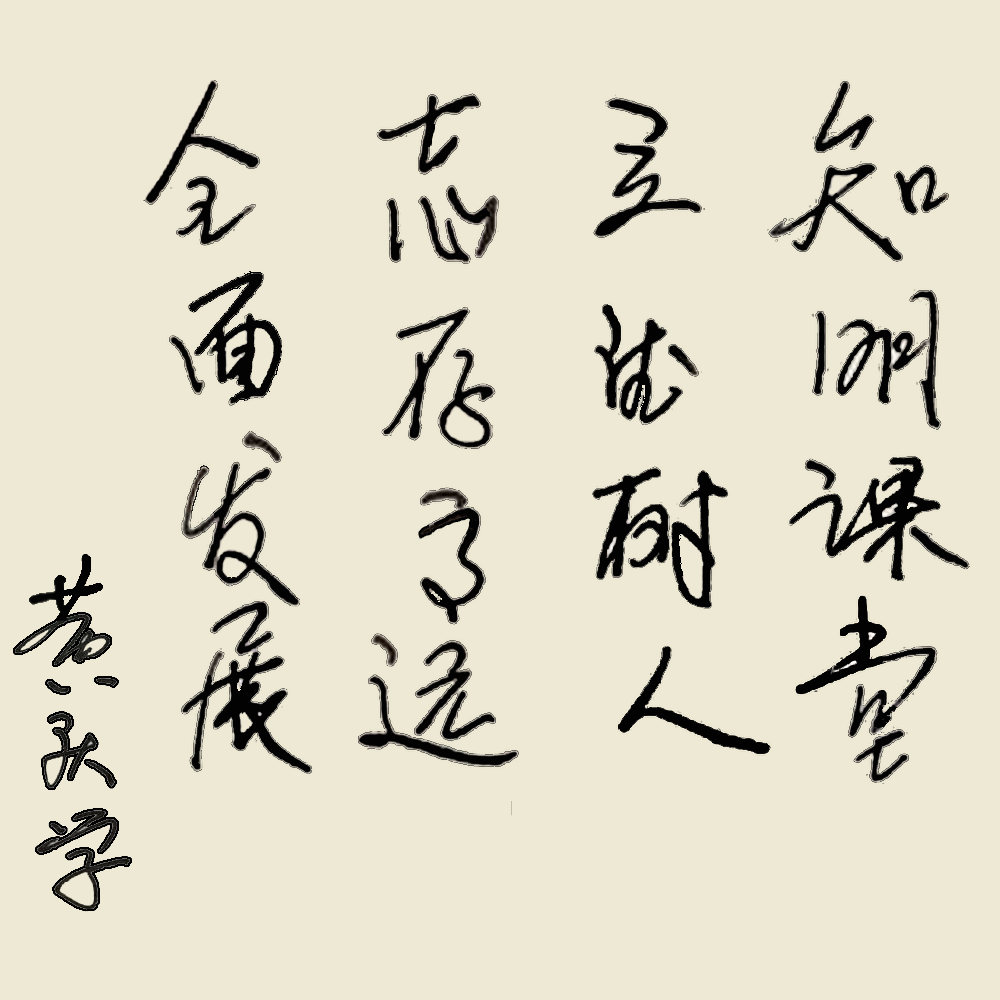 知明课堂
立德树人
志存高远
全面发展
黄美学